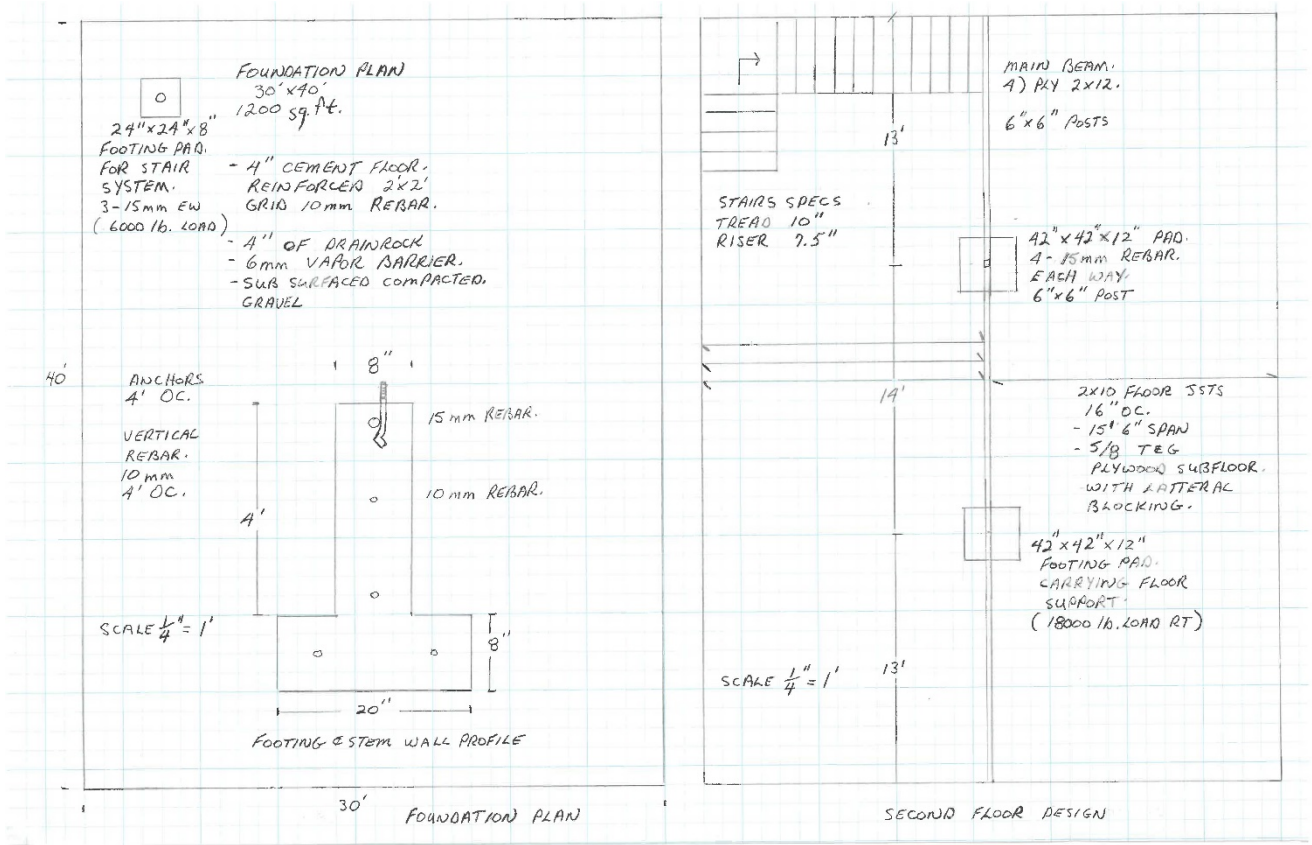 FOUNDATION PLAN
30'x40'
1200 sq.ft.
24"x24"x8"
FOOTING PAD.
FOR STAIR
SYSTEM.
3-15mm EW
(6000 lb. LOAD)
- 4" CEMENT FLOOR.
REINFORCED 2'x2'
GRID 10mm REBAR.
- 4" OF DRAINROCK
- 6mm VAPOR BARRIER.
- SUB SURFACED COMPACTED.
GRAVEL
40'
ANCHORS
4' OC.
VERTICAL
REBAR.
10 mm
4' OC.
8"
15 mm REBAR.
10 mm REBAR.
4'
SCALE 1/4" = 1'
8"
20"
FOOTING & STEM WALL PROFILE
30'
FOUNDATION PLAN
MAIN BEAM.
4) PLY 2x12.
6"x6" POSTS
13'
STAIRS SPECS
TREAD 10"
RISER 7.5"
42"x42"x12" PAD.
4-15mm REBAR.
EACH WAY.
6"x6" POST
14'
2x10 FLOOR JSTS
16" OC.
- 15' 6" SPAN
- 5/8 T&G
PLYWOOD SUBFLOOR.
WITH LATTERAL
BLOCKING.
42"x42"x12"
FOOTING PAD.
CARRYING FLOOR
SUPPORT.
(18000 lb. LOAD RT)
SCALE 1/4" = 1'
13'
SECOND FLOOR DESIGN